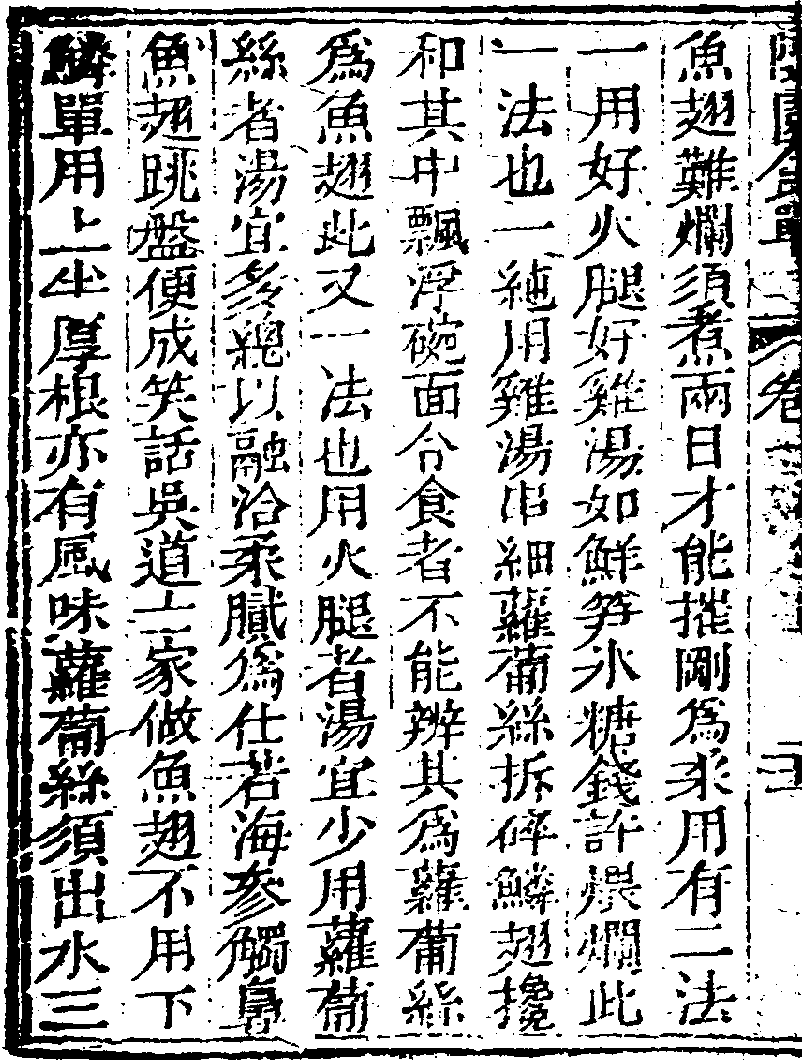 隨園食單 卷
魚翅難爛須煮兩日才能摧剛爲柔用有二法
一用好火腿好雞湯如鮮笋氷糖錢許煨爛此
一法也一純用雞湯串細蘿蔔絲拆碎鱗翅攙
和其中飄浮碗面令食者不能辨其爲蘿蔔絲
爲魚翅此又一法也用火腿者湯宜少用蘿蔔
絲者湯宜多總以融洽柔膩爲仕若海參觸鼻
魚翅跳盤便成笑話吳道士家做魚翅不用下
鱗單用上半厚根亦有風味蘿蔔絲須出水三